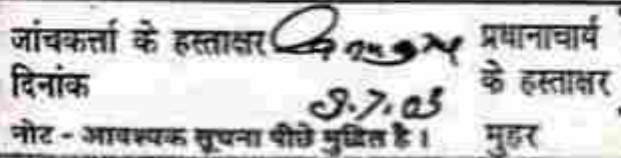 जांचकर्त्ता के हस्ताक्षर प्रधानाचार्य
दिनांक 9.7.03 के हस्ताक्षर
नोट - आवश्यक सूचना पीछे मुद्रित है। मुहर